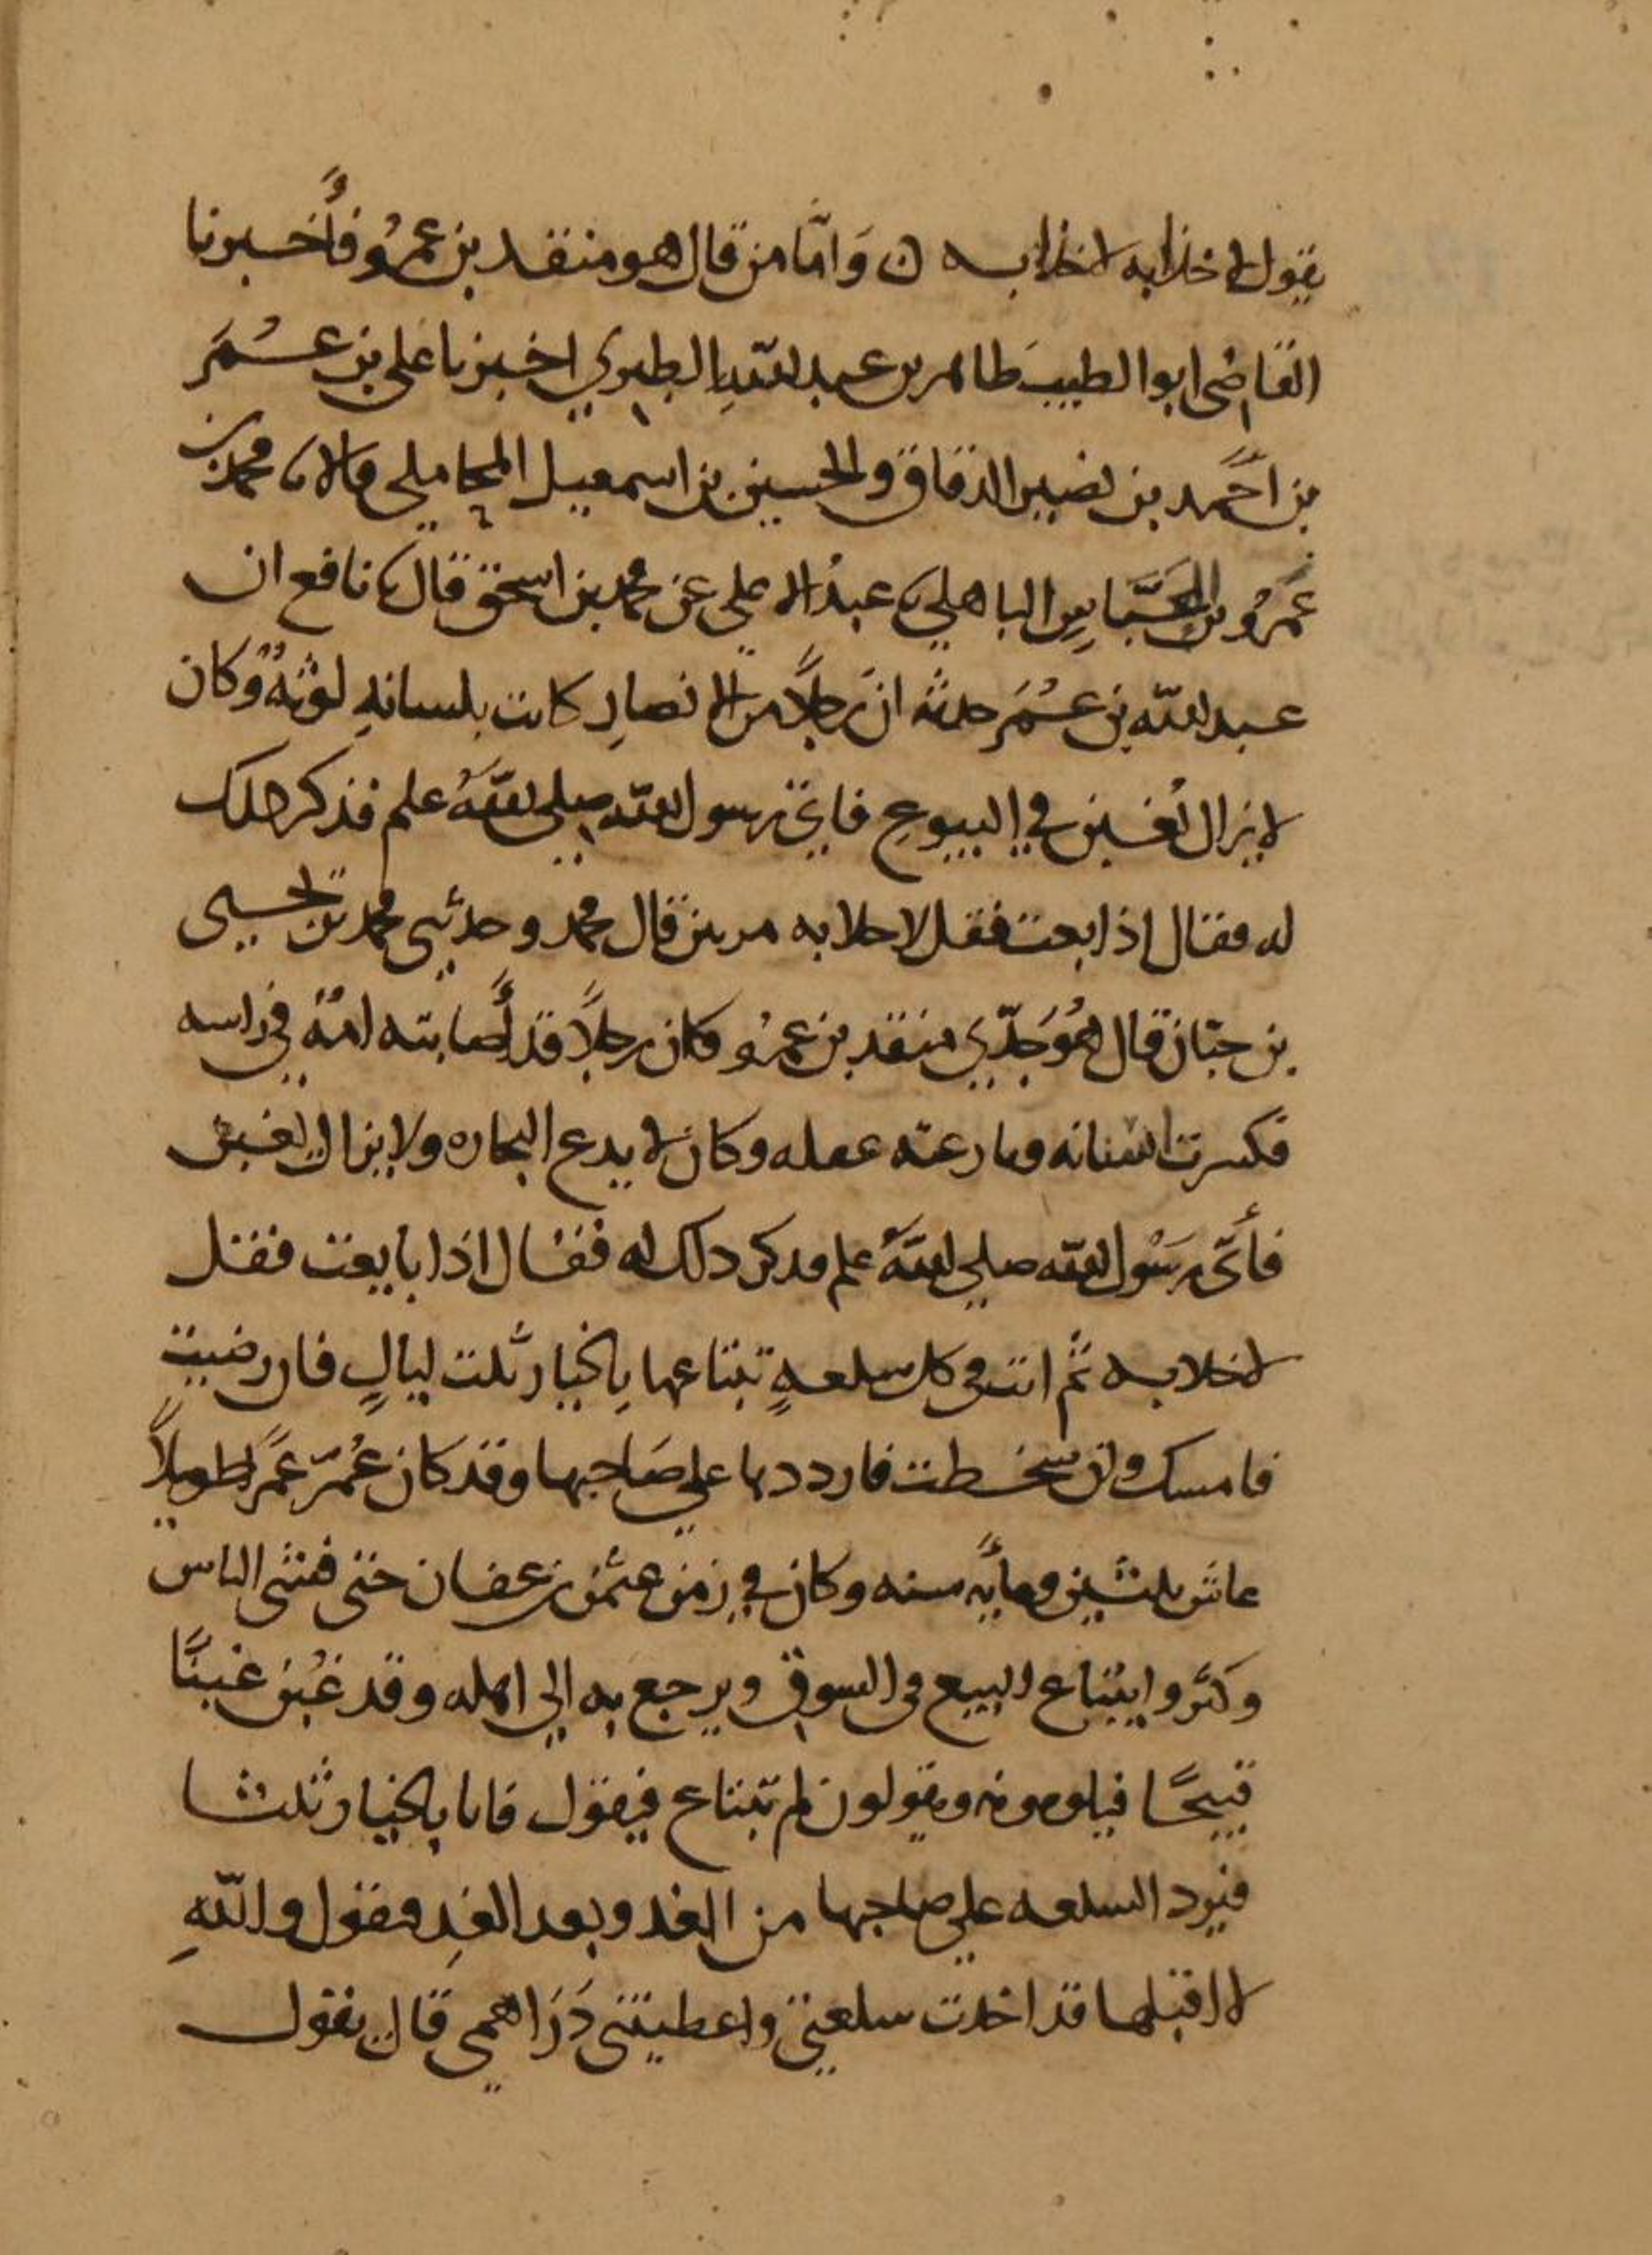 يقول لا خذابه لا خذابه ن وَامّا من قال هو منقد بن عمرٍو فأخبرنا
القاضى ابو الطيب طاهر بن عبد الله الطبري اخبرنا على بن عُمَر
بن احَمد بن نصير الدقاق والحسين بن اسمعيل المحاملي قالا نا محمد بن
عَمرو بن العَبَّاسِ الباهلي نا عبدُ الاعلى عن محمد بن اسحق قال نا نافع ان
عبد الله بن عُمَر حدثه انّ رجلاً من الانصارِ كانت بلسانهِ لوثةٌ وكان
لا يزال يُغبن في البيوعِ فاتى رسول الله صلى اللهُ علم فذكر ذلك
له فقال اذا بعت فقل لا حلابه مرتين قال محمد وحدثني محمد بن يحيى
بن حبّان قال هُوَ جدّي منقد بن عمرٍو وكان رجلاً قد أصابته امّةٌ في راسه
فكسرت لسنانه ونازعته عقله وكان لا يدع التجاره ولا يزال يغبن
فأتى رسُول الله صلى اللهُ علم فدكر دلك له فقال اذا بايعت فقل
لا خلابه ثم انت فى كل سلعهٍ تبتاعها بالخيار ثلت ليالٍ فان رضيت
فامسك وان سخطت فارددها علي صَاحبها وقد كان عُمّر عَمَراً طويلاً
عاش ثلثين ومأيه سنه وكان في زمن عثمن بن عفان حتى فشى الناس
وكثروا يبتاع البيع في السوق ويرجع به الى اهله وقد غُبن غبنًا
قبيحًا فيلومونه ويقولون لم تبتاع فيقول فانا بالخيار ثلثا
فيرد السلعه علي صاحبها من الغد وبعد الغدِ فيقول واللهِ
لا اقبلها قد اخدت سلعتي واعطيتني دَرَاهمي قال يقول